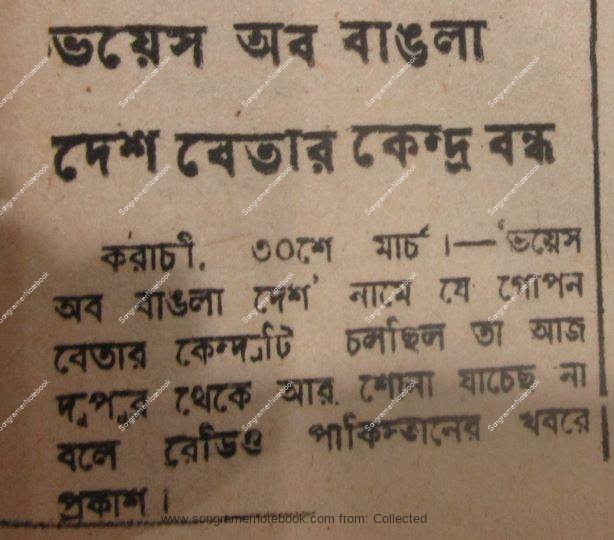 ভয়েস অব বাঙলা
দেশ বেতার কেন্দ্র বন্ধ
করাচী, ৩০শে মার্চ।—'ভয়েস
অব বাঙলা দেশ' নামে যে গোপন
বেতার কেন্দ্রটি চলছিল তা আজ
দুপুর থেকে আর শোনা যাচ্ছে না
বলে রেডিও পাকিস্তানের খবরে
প্রকাশ।
www.songramernotebook.com from: Collected